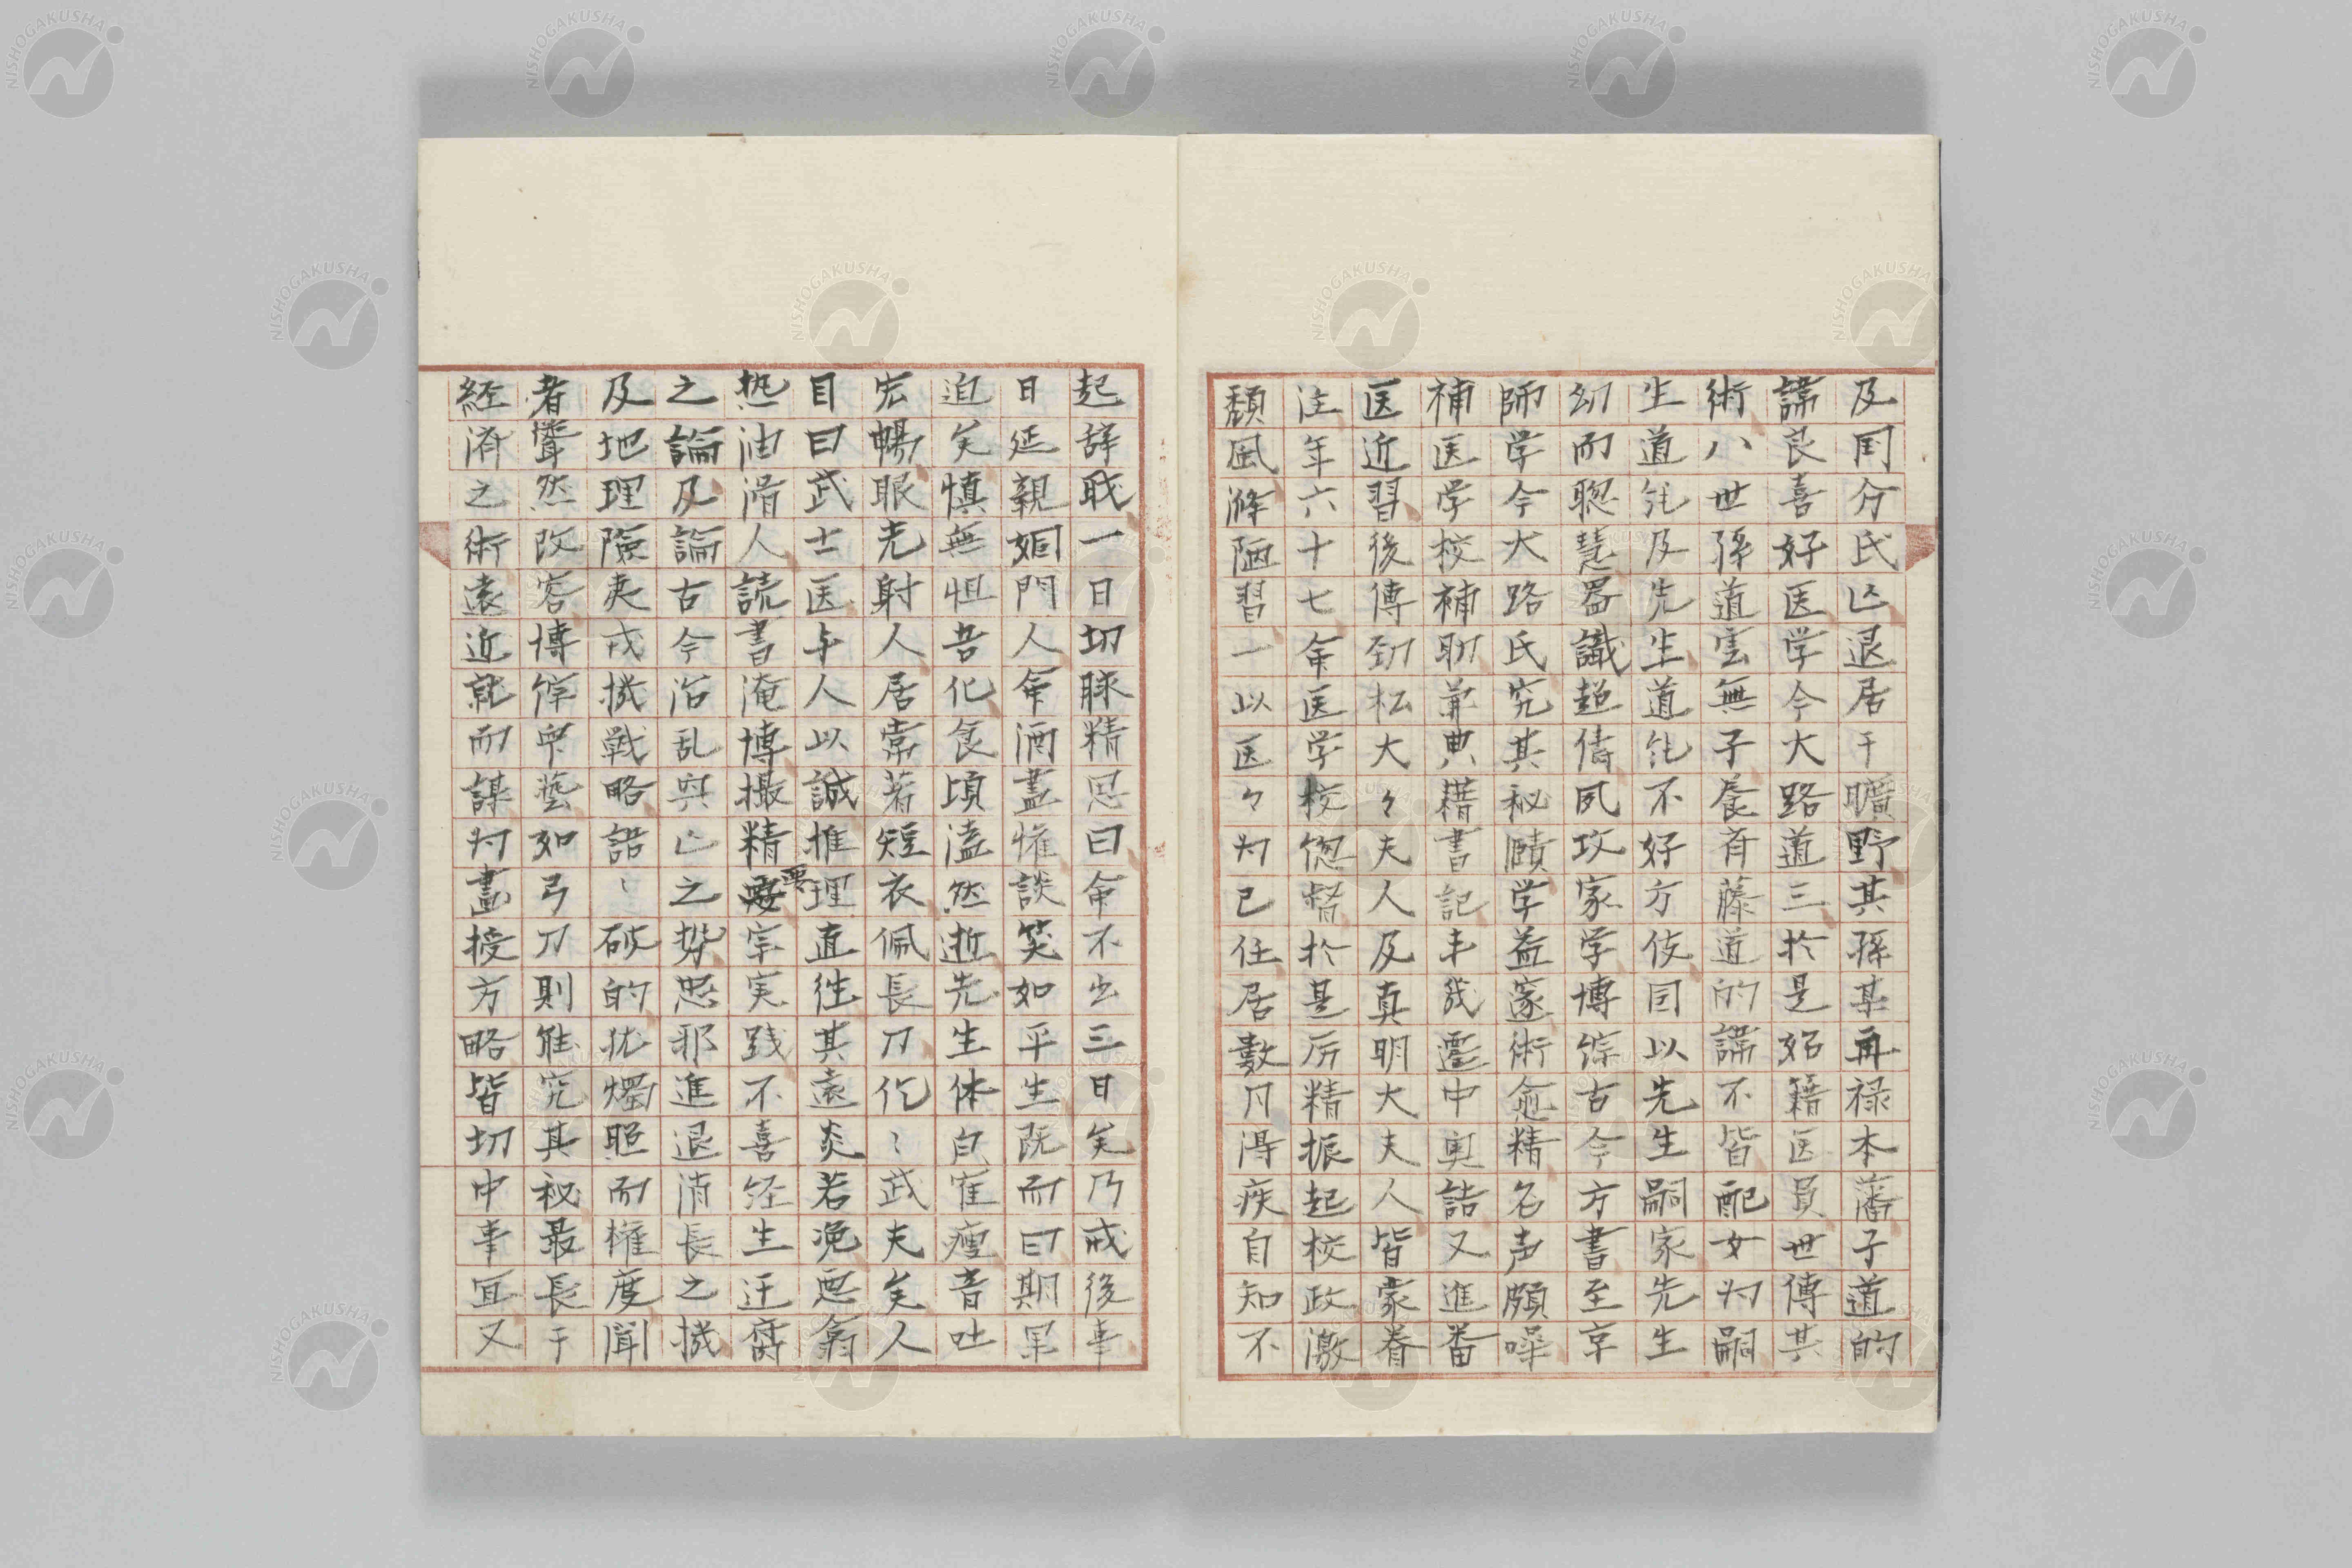 及国分氏亡退居于曠野其孫某再禄本藩子道的
諱良喜好医学今大路道三於是始籍医員世傳其
術八世孫道雲無子養斉藤道的諱不皆配女为嗣
生道化及先生道化不好方伎因以先生嗣家先生
幼而聡慧器識超倚夙攻家学博綜古今方書至京
師学今大路氏究其秘賾学益邃術愈精名声頗噪
補医学校補助兼典藉書記丰幾遷中奥詰又進番
医近習後傳劲松大々夫人及真明大夫人皆蒙眷
注年六十七命医学校惣督於是厉精振起校政激
頽風滌陋習一以医々为己任居数月得疾自知不
起辞职一日切脉精思曰命不出三日矣乃戒後事
日延親姻門人命酒盡惟談笑如平生既而曰期果
迫矣慎無怛吾化食頃溘然逝先生体白寉瘦音吐
宏暢眼光射人居常若短衣佩長刀仡〻武夫矣人
目曰武士医与人以誠推理直往其遠炎若浼悪翕
热油滑人読書淹博撮精要宗実践不喜経生迂腐
之論及論古今治乱興亡之勢忠邪進退消長之機
及地理險夷戎機戦略語〻破的犹燭照而権度聞
者聳然改容博綜衆藝如弓刀則能究其秘最長于
経済之術遠近就而謀为畫授方略皆切中事宜又